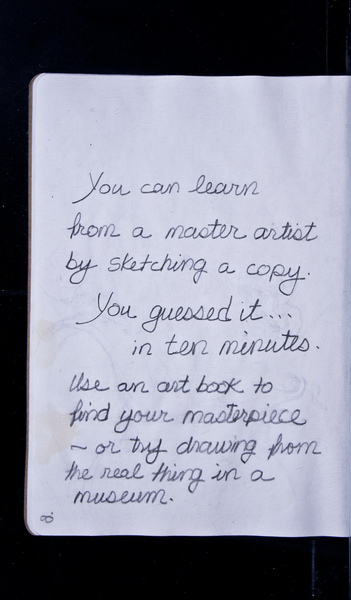 You can learn
from a master artist
by sketching a copy.
You guessed it...
in ten minutes.
Use an art book to
find your masterpiece
~ or try drawing from
the real thing in a
museum.